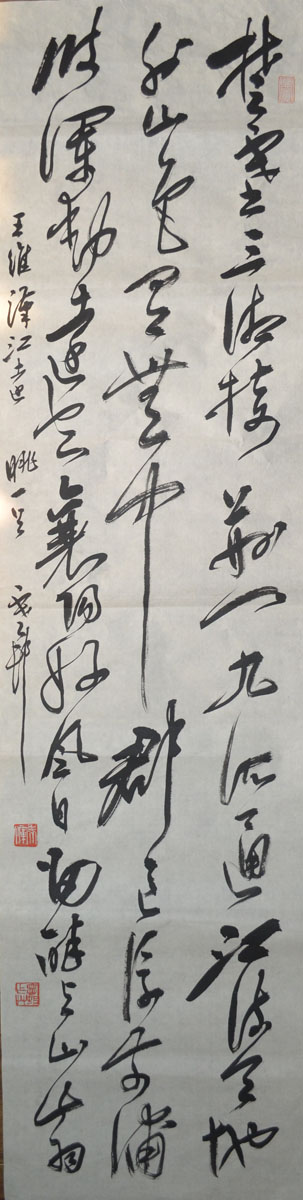 楚塞三湘接荆门九派通江流天地
外山色有無中郡邑浮前浦
波瀾動遠空襄陽好風日留醉与山翁
王維漢江遠眺一首